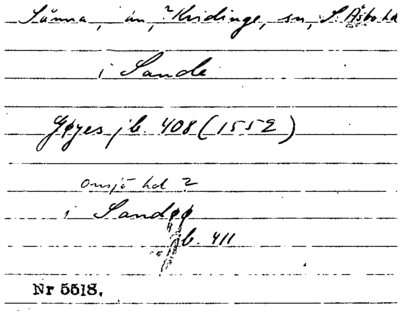 Sänna, ån, ? Kvidinge, sn, S. Åsbo hd
i Sande
Gøyes jb. 408 (1552)
Onsjö hd ?
i Sandøø
jb. 411
Nr 5518.